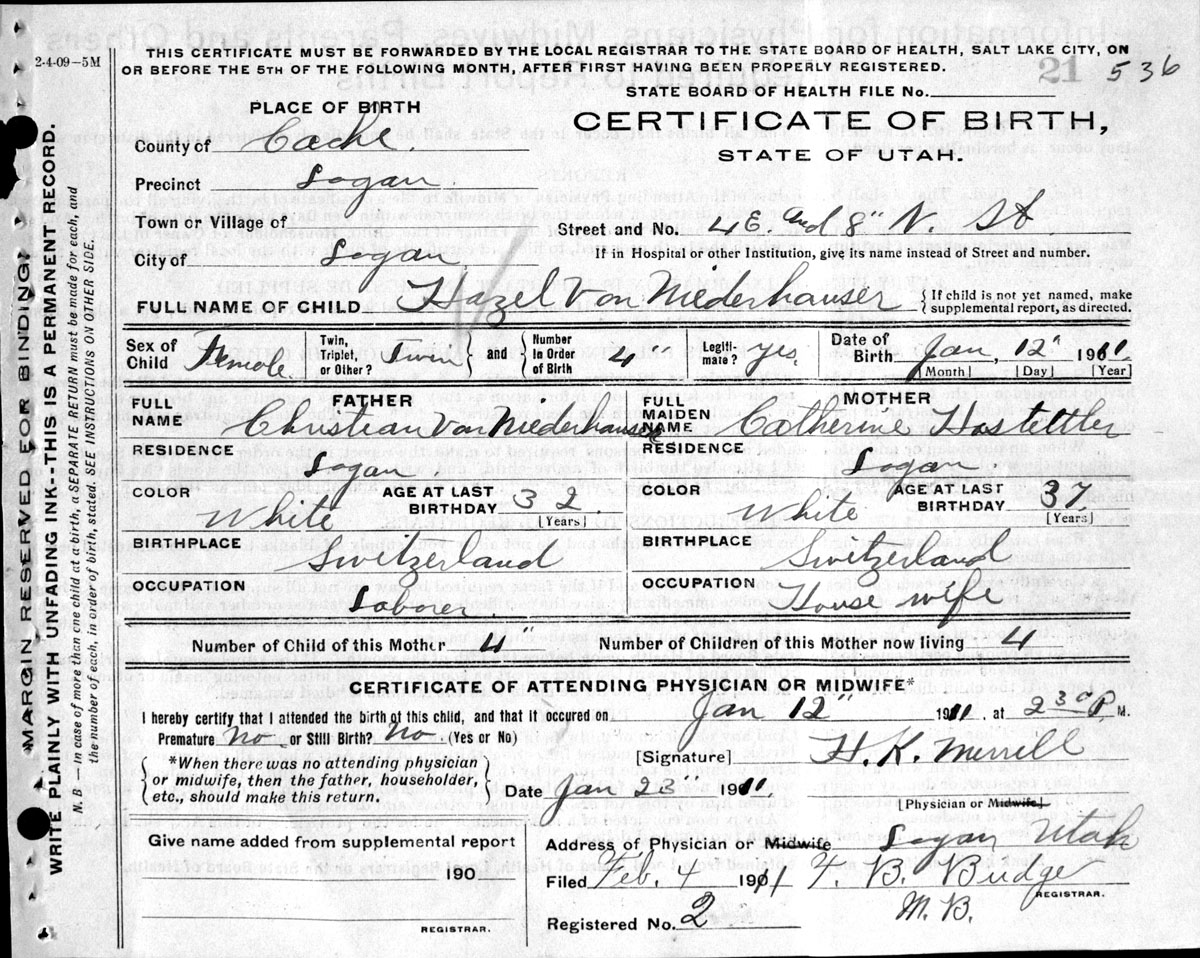 THIS CERTIFICATE MUST BE FORWARDED BY THE LOCAL REGISTRAR TO THE STATE BOARD OF HEALTH, SALT LAKE CITY, ON
OR BEFORE THE 5TH OF THE FOLLOWING MONTH, AFTER FIRST HAVING BEEN PROPERLY REGISTERED.
2-4-09-5M
21 536
STATE BOARD OF HEALTH FILE No.
PLACE OF BIRTH
CERTIFICATE OF BIRTH,
STATE OF UTAH.
County of Cache.
Precinct Logan.
Town or Village of
Street and No. 4 E. and 8" N. St
City of Logan.
If in Hospital or other Institution, give its name instead of Street and number.
FULL NAME OF CHILD Hazel Von Niederhauser { If child is not yet named, make supplemental report, as directed.
Sex of Child Female Twin, Triplet, or Other? Twin } and { Number in Order of Birth 4" Legiti-mate? yes Date of Birth Jan, 12" 1911.
[Month] [Day] [Year]
FATHER
FULL NAME Christian Von Niederhauser
RESIDENCE Logan
COLOR White AGE AT LAST BIRTHDAY 32
[Years]
BIRTHPLACE Switzerland
OCCUPATION Laborer.
MOTHER
FULL MAIDEN NAME Catherine Hostettler
RESIDENCE Logan
COLOR White AGE AT LAST BIRTHDAY 37.
[Years]
BIRTHPLACE Switzerland
OCCUPATION House wife
Number of Child of this Mother 4" Number of Children of this Mother now living 4
CERTIFICATE OF ATTENDING PHYSICIAN OR MIDWIFE*
I hereby certify that I attended the birth of this child, and that it occured on Jan 12" 1911, at 2 30 P. M.
Premature no or Still Birth? no. (Yes or No)
{ *When there was no attending physician
or midwife, then the father, householder,
etc., should make this return. }
[Signature] H. K. Merrill
Date Jan 23" 1911
[Physician or Midwife]
Give name added from supplemental report
190
REGISTRAR.
Address of Physician or Midwife Logan Utah
Filed Feb. 4 1911 F. B. Budge
REGISTRAR.
M. B.
Registered No. 2
MARGIN RESERVED FOR BINDING.
WRITE PLAINLY WITH UNFADING INK--THIS IS A PERMANENT RECORD.
N. B.—in case of more than one child at a birth, a SEPARATE RETURN must be made for each, and
the number of each, in order of birth, stated. SEE INSTRUCTIONS ON OTHER SIDE.